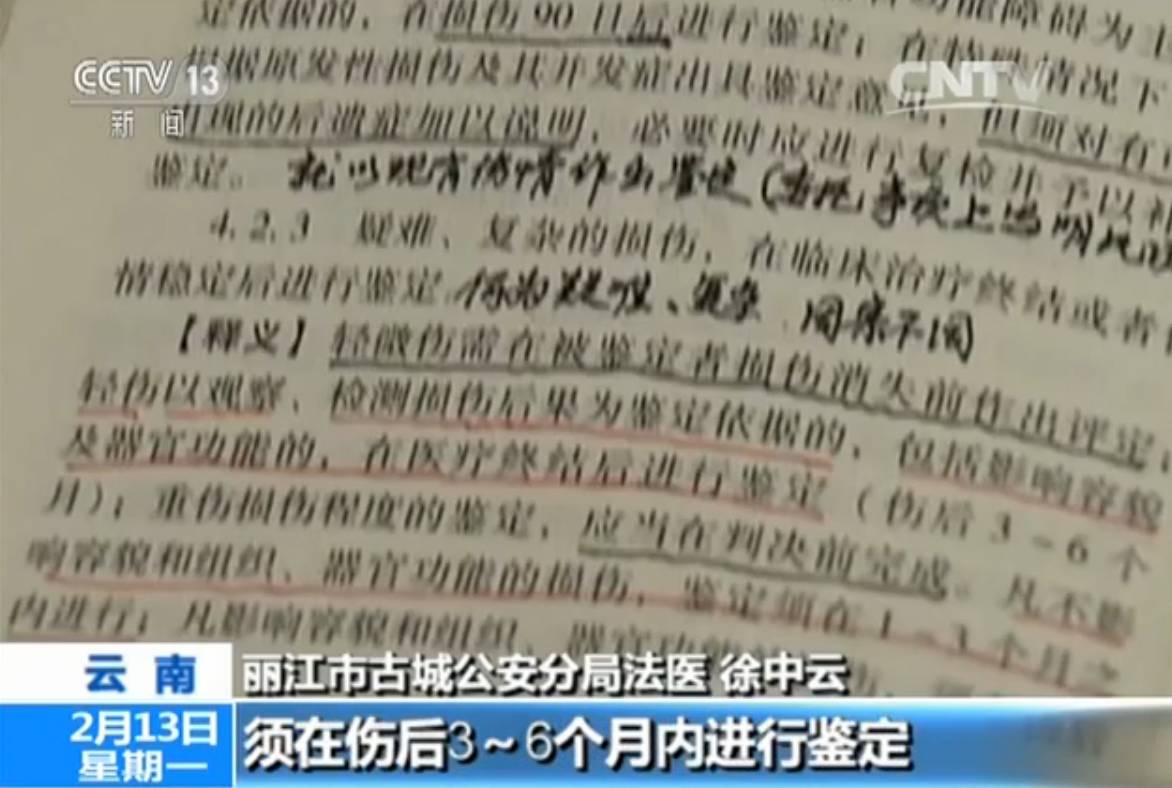 功能障碍为主
定依据的，在损伤90日后进行鉴定；在特殊情况下
根据原发性损伤及其并发症出具鉴定意见，但须对有
出现的后遗症加以说明，必要时应进行复检并予以补
鉴定。就以现有伤情作出鉴定（委托事项上注明
4.2.3 疑难、复杂的损伤，在临床治疗终结或者
情稳定后进行鉴定 何为疑难、复杂 因案不同
【释义】轻微伤需在被鉴定者损伤消失前作出评定；
轻伤以观察、检测损伤后果为鉴定依据的，包括影响容貌
及器官功能的，在医疗终结后进行鉴定（伤后3~6个
月）；重伤损伤程度的鉴定，应当在判决前完成。凡不影
响容貌和组织、器官功能的损伤，鉴定须在1~3个月之
内进行；凡影响容貌和组织、器官功能
CCTV 13
新闻
CNTV
云南
丽江市古城公安分局法医 徐中云
2月13日
星期一
须在伤后3～6个月内进行鉴定